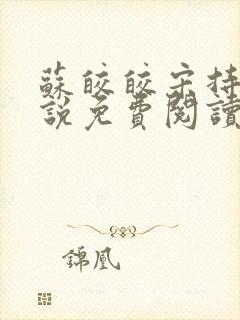 蘇皎皎宋持
說免費閱讀
錦凰